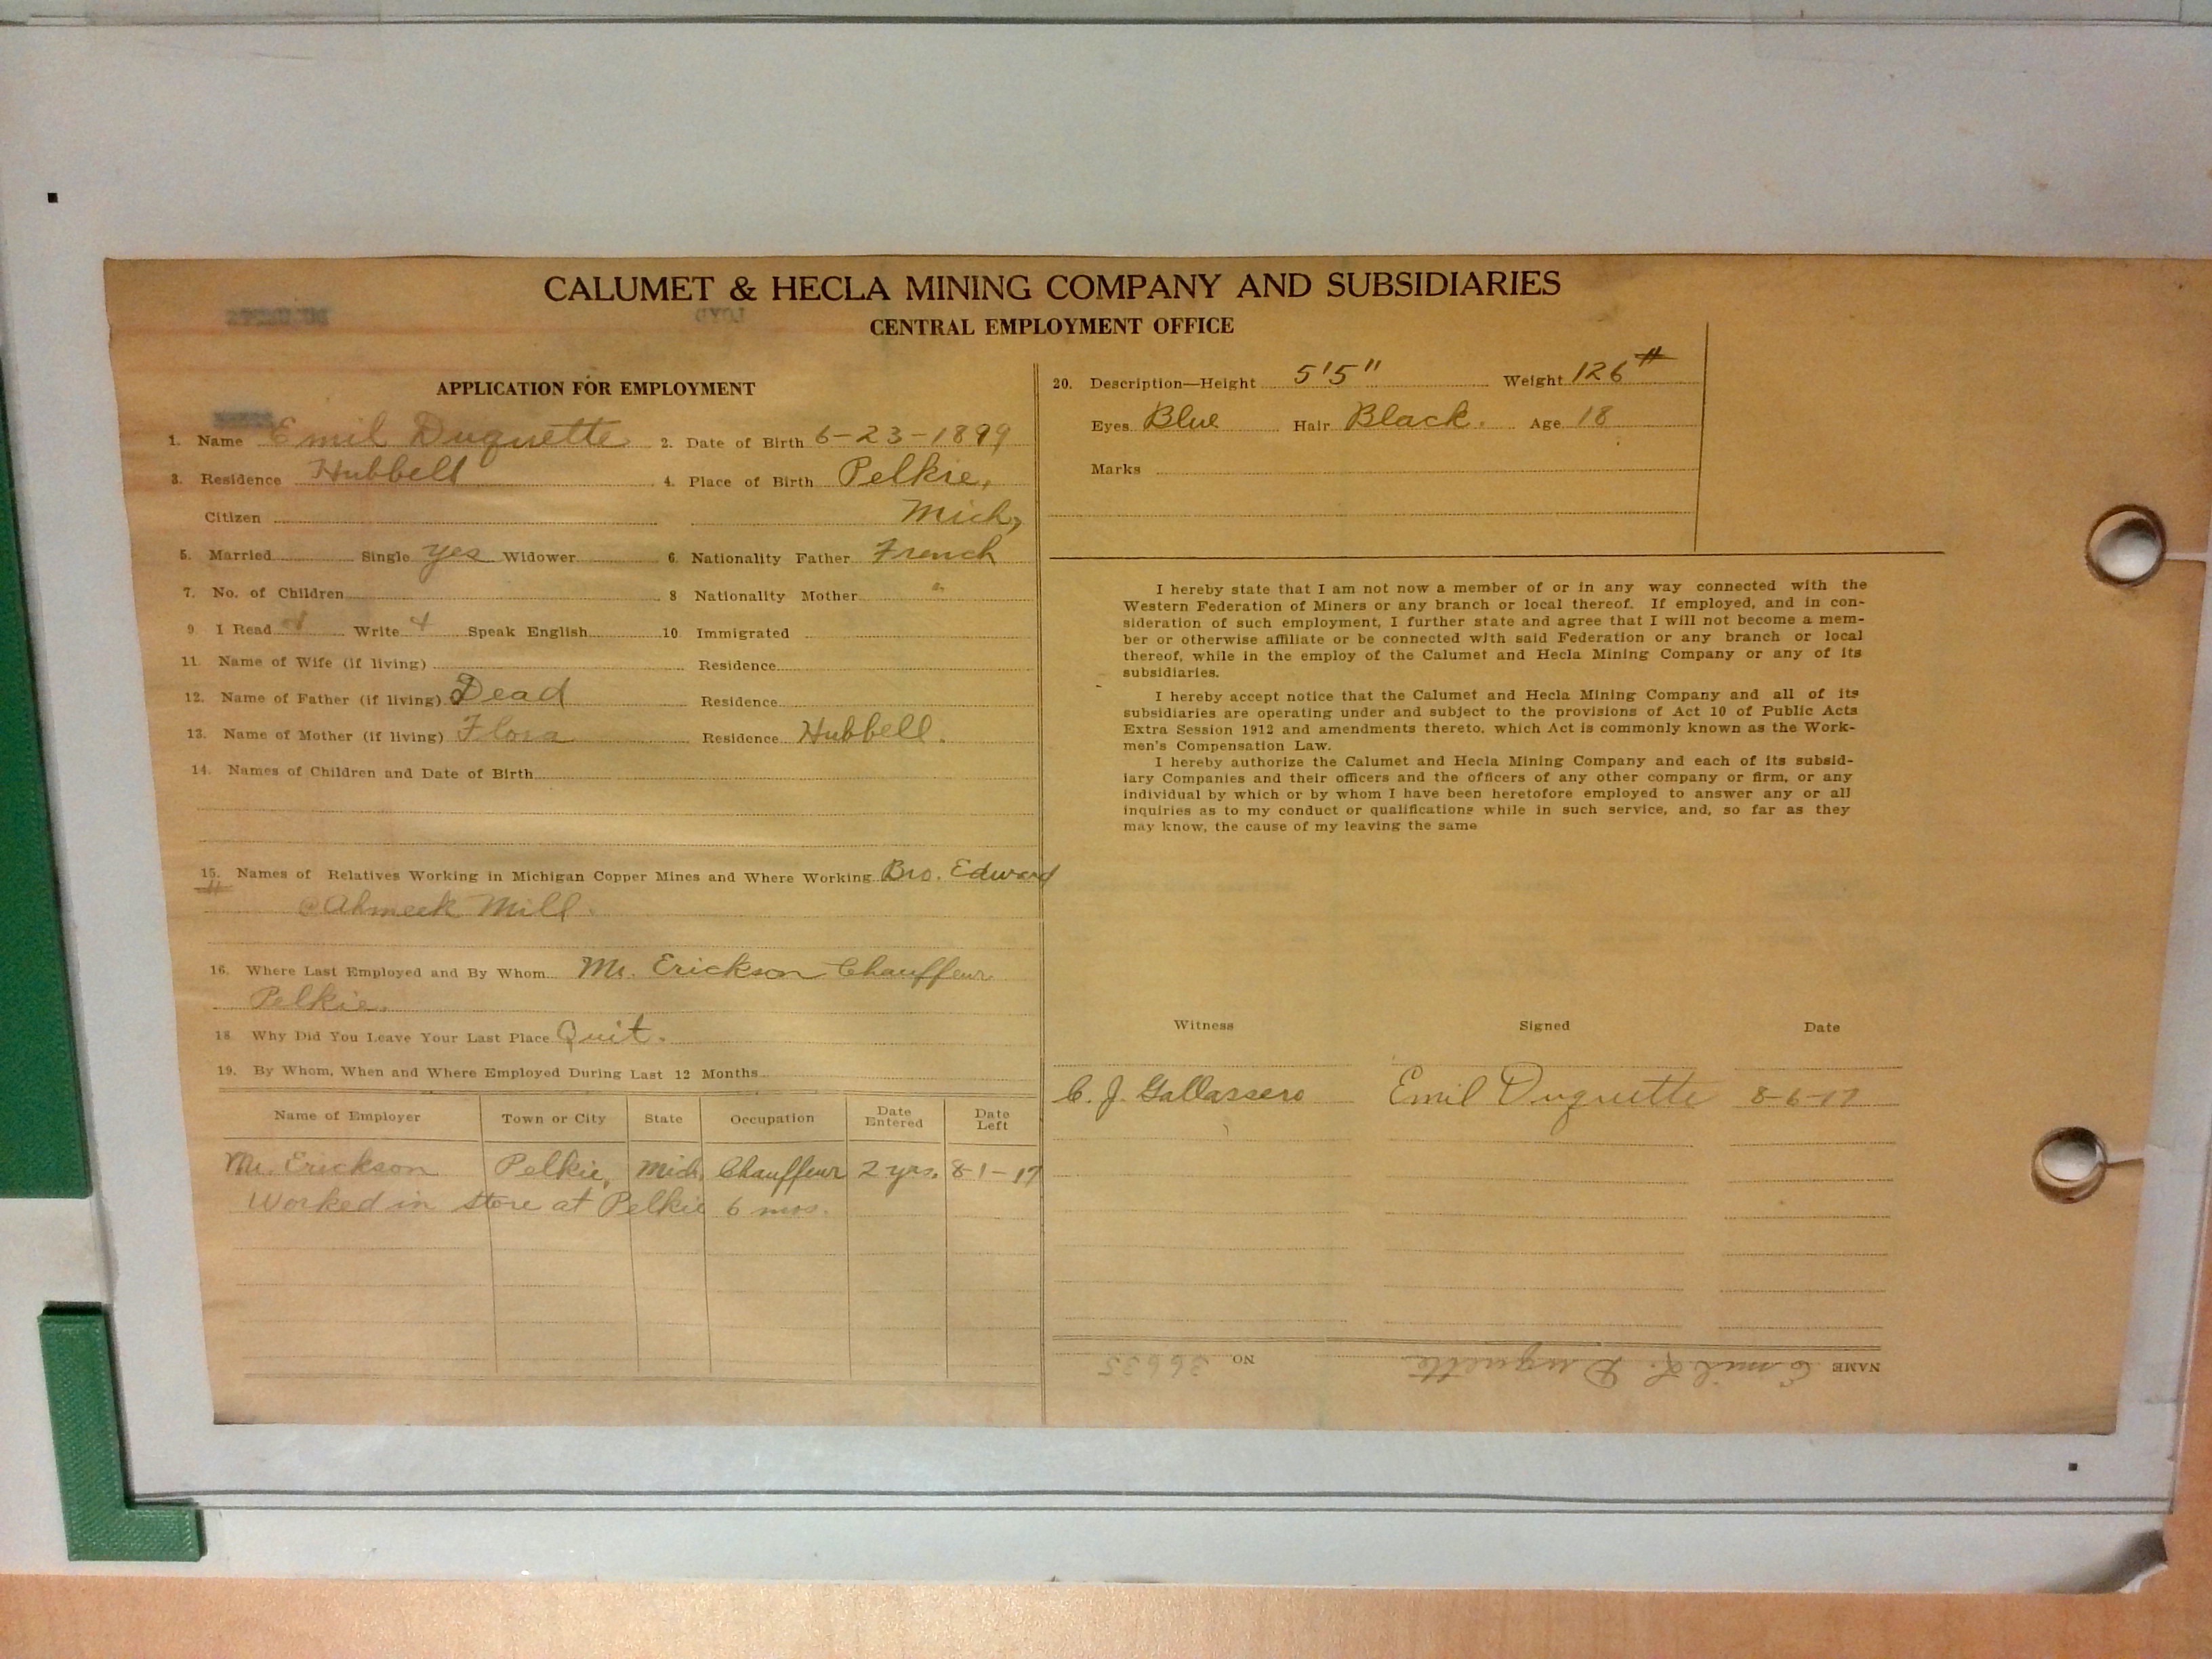 CALUMET & HECLA MINING COMPANY AND SUBSIDIARIES
CENTRAL EMPLOYMENT OFFICE
LOYD
APPLICATION FOR EMPLOYMENT
1. Name Emil Duquette 2. Date of Birth 6-23-1899
3. Residence Hubbell 4. Place of Birth Pelkie,
Citizen Mich,
5. Married Single yes Widower 6. Nationality Father French
7. No. of Children 8 Nationality Mother "
9 I Read Write Speak English 10 Immigrated
11. Name of Wife (if living) Residence
12. Name of Father (if living) Dead Residence
13. Name of Mother (if living) Flora Residence Hubbell.
14. Names of Children and Date of Birth
15. Names of Relatives Working in Michigan Copper Mines and Where Working Bro. Edward
@ Ahmeek Mill.
16. Where Last Employed and By Whom Mr. Erickson Chauffeur
Pelkie.
18 Why Did You Leave Your Last Place Quit.
19. By Whom, When and Where Employed During Last 12 Months
Name of Employer Town or City State Occupation Date Entered Date Left
Mr. Erickson Pelkie, Mich, Chauffeur 2 yrs. 8-1-17
Worked in store at Pelkie 6 mos.
20. Description—Height 5'5" Weight 126 #
Eyes Blue Hair Black. Age 18
Marks
I hereby state that I am not now a member of or in any way connected with the
Western Federation of Miners or any branch or local thereof. If employed, and in con-
sideration of such employment, I further state and agree that I will not become a mem-
ber or otherwise affiliate or be connected with said Federation or any branch or local
thereof, while in the employ of the Calumet and Hecla Mining Company or any of its
subsidiaries.
I hereby accept notice that the Calumet and Hecla Mining Company and all of its
subsidiaries are operating under and subject to the provisions of Act 10 of Public Acts
Extra Session 1912 and amendments thereto, which Act is commonly known as the Work-
men's Compensation Law.
I hereby authorize the Calumet and Hecla Mining Company and each of its subsid-
iary Companies and their officers and the officers of any other company or firm, or any
individual by which or by whom I have been heretofore employed to answer any or all
inquiries as to my conduct or qualifications while in such service, and, so far as they
may know, the cause of my leaving the same
Witness Signed Date
C. J. Gallassero Emil Duquette 8-6-17
NAME Emil L. Duquette NO. 36635